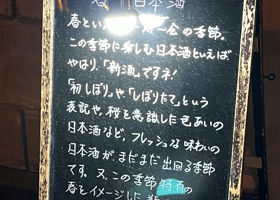 日本酒
春といえ 一会の季節。
この季節に楽しむ日本酒といえば
やはり、「新酒」ですネ!
「初しぼり」や「しぼりたて」という
表記や、桜を意識した色あいの
日本酒など、フレッシュな味わいの
日本酒がまだまだ出回る季節
です。又、この季節特有の
春をイメージした